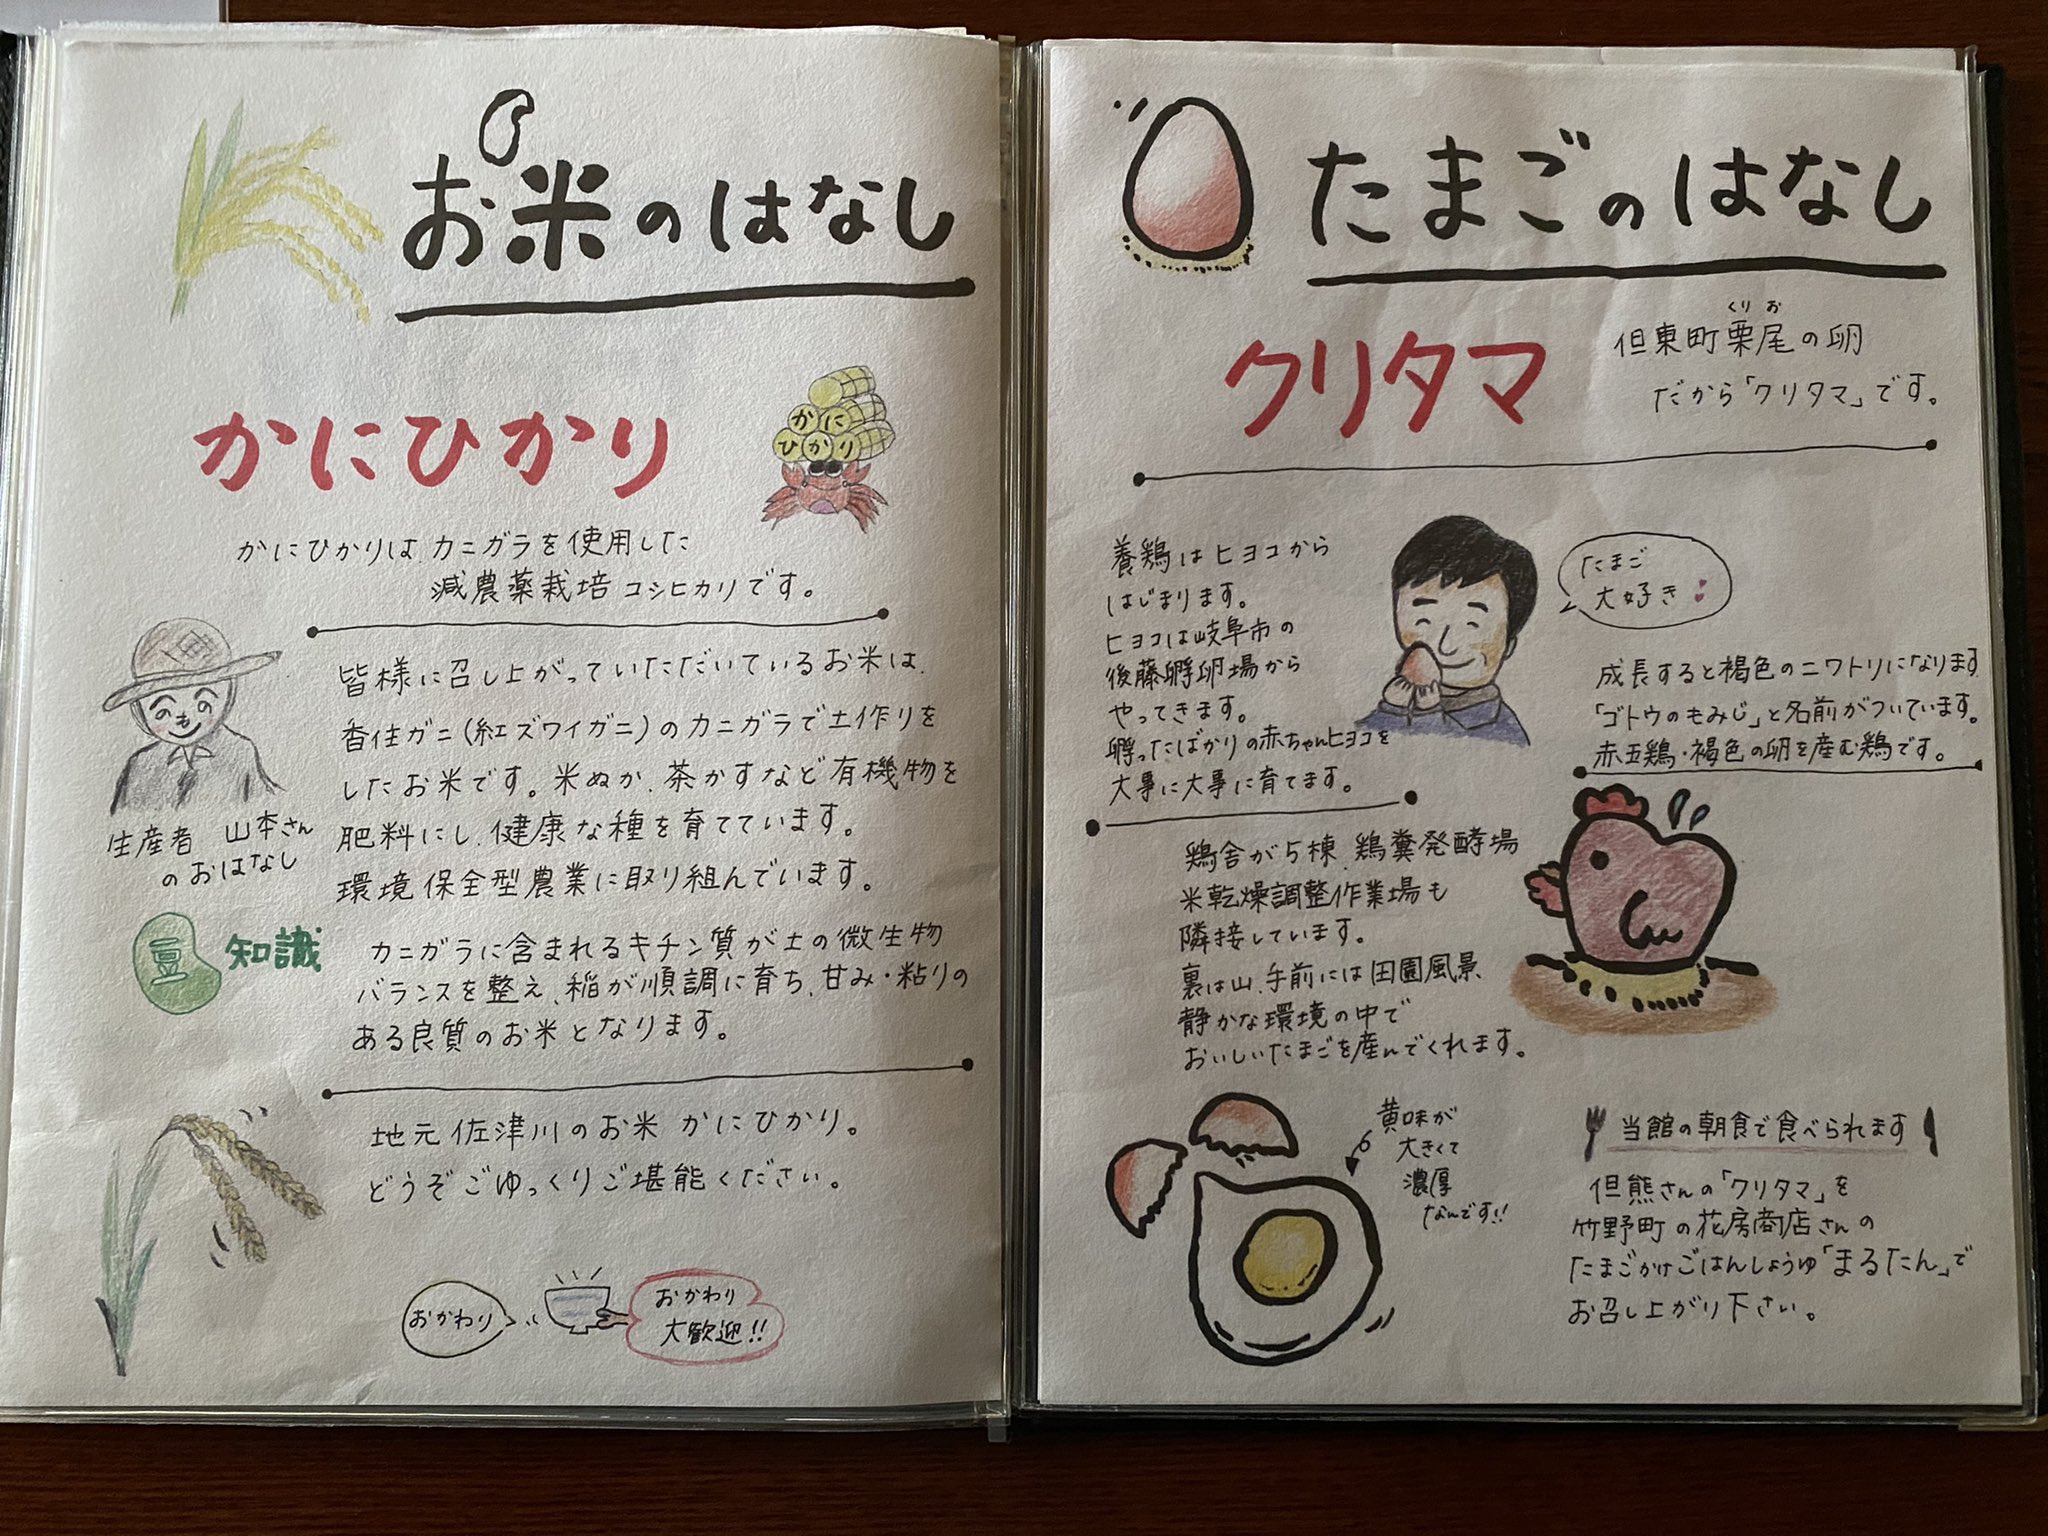 お米のはなし
かにひかり
かに
ひかり
かにひかりは、カニガラを使用した
減農薬栽培コシヒカリです。
生産者 山本さん
のおはなし
皆様に召し上がっていただいているお米は、
香住ガニ(紅ズワイガニ)のカニガラで土作りを
したお米です。米ぬか、茶かすなど有機物を
肥料にし、健康な種を育てています。
環境保全型農業に取り組んでいます。
豆知識
カニガラに含まれるキチン質が土の微生物
バランスを整え、稲が順調に育ち、甘み・粘りの
ある良質のお米となります。
地元佐津川のお米 かにひかり。
どうぞごゆっくりご堪能ください。
おかわり
おかわり
大歓迎!!
たまごのはなし
クリタマ
くりお
但東町栗尾の卵
だから「クリタマ」です。
養鶏はヒヨコから
はじまります。
ヒヨコは岐阜市の
後藤孵卵場から
やってきます。
孵ったばかりの赤ちゃんヒヨコを
大事に大事に育てます。
たまご
大好き
成長すると褐色のニワトリになります
「ゴトウのもみじ」と名前がついています。
赤玉鶏・褐色の卵を産む鶏です。
鶏舎が5棟、鶏糞発酵場
米乾燥調整作業場も
隣接しています。
裏は山、手前には田園風景、
静かな環境の中で
おいしいたまごを産んでくれます。
黄味が
大きくて
濃厚
なんです!!
当館の朝食で食べられます
但熊さんの「クリタマ」を
竹野町の花房商店さんの
たまごかけごはんしょうゆ「まるたん」で
お召し上がり下さい。